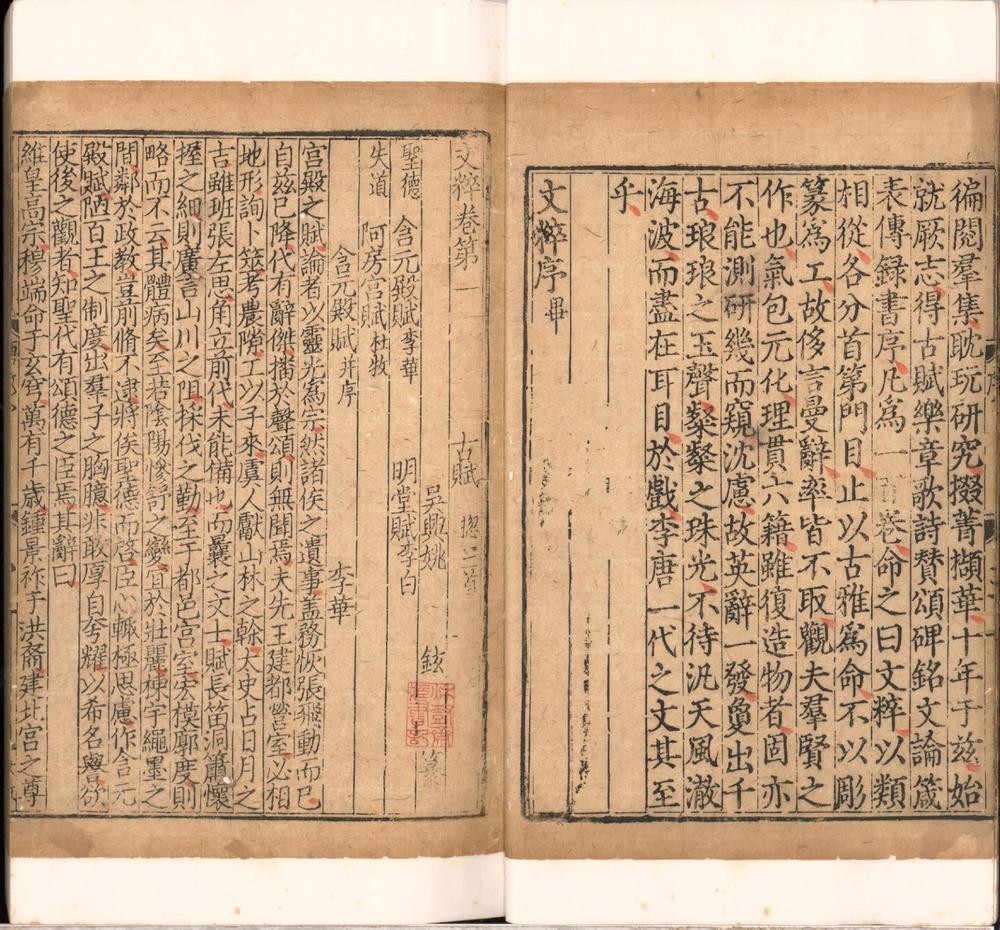 徧閱羣集耽玩研究掇菁擷華十年于兹始
就厥志得古賦樂章歌詩賛頌碑銘文論箴
表傳録書序凡爲一百卷命之曰文粹以類
相從各分首第門目止以古雅爲命不以彫
篆爲工故侈言曼辭率皆不取觀夫羣賢之
作也氣包元化理貫六籍雖復造物者固亦
不能測研幾而窺沈慮故英辭一發敻出千
古琅琅之玉聲粲粲之珠光不待汎天風澈
海波而盡在耳目於戲李唐一代之文其至
乎
文粹序畢
文粹卷第一 古賦 揔三首
吳興姚 鉉 纂
聖德 含元殿賦李華 明堂賦李白
失道 阿房宮賦杜牧
含元殿賦并序 李華
宮殿之賦論者以靈光爲宗然諸侯之遺事蓋務恢張飛動而已
自兹已降代有辭傑播於聲頌則無聞焉夫先王建都營室必相
地形詢卜筮考農隙工以子來虞人獻山林之榦太史占日月之
吉雖班張左思角立前代未能備也而曩之文士賦長笛洞簫懷
握之細則廣言山川之阻採伐之勤至于都邑宮室宏模廓度則
略而不云其體病矣至若陰陽慘舒之變宜於壯麗棟宇繩墨之
間鄰於政教豈前脩不逮將俟聖德而啓臣心輒極思慮作含元
殿賦陋百王之制度出羣子之胸臆非敢厚自夸耀以希名譽欲
使後之觀者知聖代有頌德之臣焉其辭曰
維皇高宗穆端命于玄穹萬有千歲鍾景祚于洪裔建北宮之尊